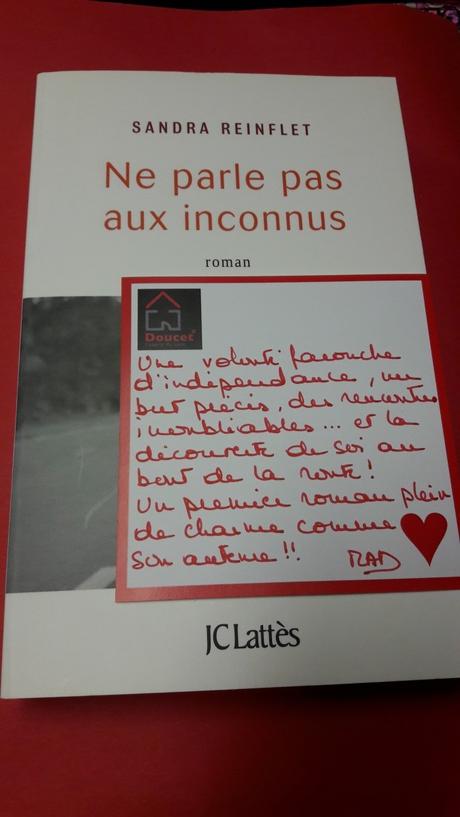 SANDRA REINFLET
Ne parle pas
aux inconnus
roman
Doucet
Une volonté farouche
d'indépendance, un
but précis, des rencontres
inoubliables... et la
découverte de soi au
bout de la route !
Un premier roman plein
de charme comme
son auteure !!
MAD
JC Lattès